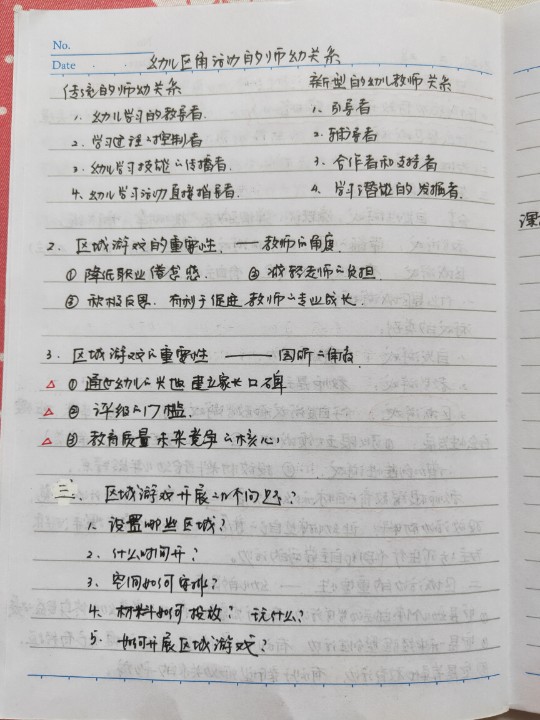 No.
Date
幼儿区角活动的师幼关系
传统的师幼关系 新型的幼儿教师关系
1. 幼儿学习的教导者. 1. 引导者
2. 学习过程的控制者 2. 辅导者
3. 幼儿学习技能的传播者. 3. 合作者和支持者
4. 幼儿学习活动直接指导者. 4. 学习潜能的发掘者.
2. 区域游戏的重要性 —— 教师的角度
① 降低职业倦怠感. ② 减轻老师的负担
③ 积极反思. 有利于促进教师的专业成长.
3. 区域游戏的重要性 —— 园所的角度.
△ ① 通过幼儿的发展建立家长口碑
△ ② 评级的门槛.
△ ③ 教育质量未来竞争的核心
三. 区域游戏开展的不同思?
1. 设置哪些区域?
2. 什么时间开?
3. 空间如何安排?
4. 材料如何投放? 玩什么?
5. 如何开展区域游戏?
课